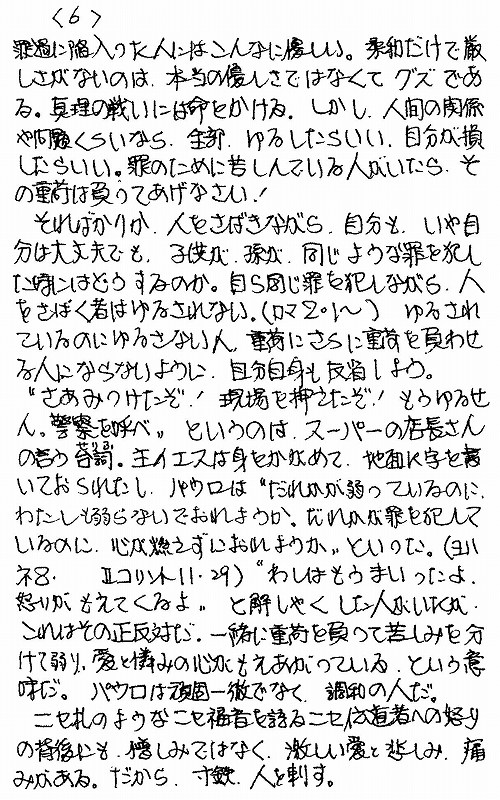 <6>
罪過に陥入った人にはこんなに優しい。柔和だけで厳
しさがないのは、本当の優しさではなくてグズであ
る。真理の戦いには命をかける。しかし、人間の関係
や問題くらいなら、全部、ゆるしたらいい、自分が損
したらいい。罪のために苦しんでいる人がいたら、そ
の重荷は負うてあげなさい!
そればかりか、人をさばきながら、自分も、いや自
分は大丈夫でも、子供が、孫が、同じような罪を犯し
た時にはどうするのか。自ら同じ罪を犯しながら、人
をさばく者はゆるされない。(ロマ2・1~) ゆるされ
ているのにゆるさない人、重荷にさらに重荷を負わせ
る人にならないように、自分自身も反省しよう。
“さあみつけたぞ!現場を押えたぞ!もうゆるせ
ん。警察を呼べ〃 というのは、スーパーの店長さん
の言う台詞。主イエスは身をかがめて、地面に字を書
いておられたし、パウロは“だれかが弱っているのに、
わたしも弱らないでおれようか。だれかが罪を犯して
いるのに、心が燃えずにおれようか〃といった。(ヨハ
ネ8・ Ⅱコリント11・29)“わしはもうまいったよ、
怒りがもえてくるよ〃 と解しゃくした人がいたが、
これはその正反対だ。一緒に重荷を負って苦しみを分
けて弱り、愛と憐みの心がもえあがっている、という意
味だ。パウロは頑固一徹でなく、調和の人だ。
ニセ札のようなニセ福音を語るニセ伝道者への怒り
の背後にも、憎しみではなく、激しい愛と悲しみ、痛
みがある。だから、寸鉄、人を刺す。